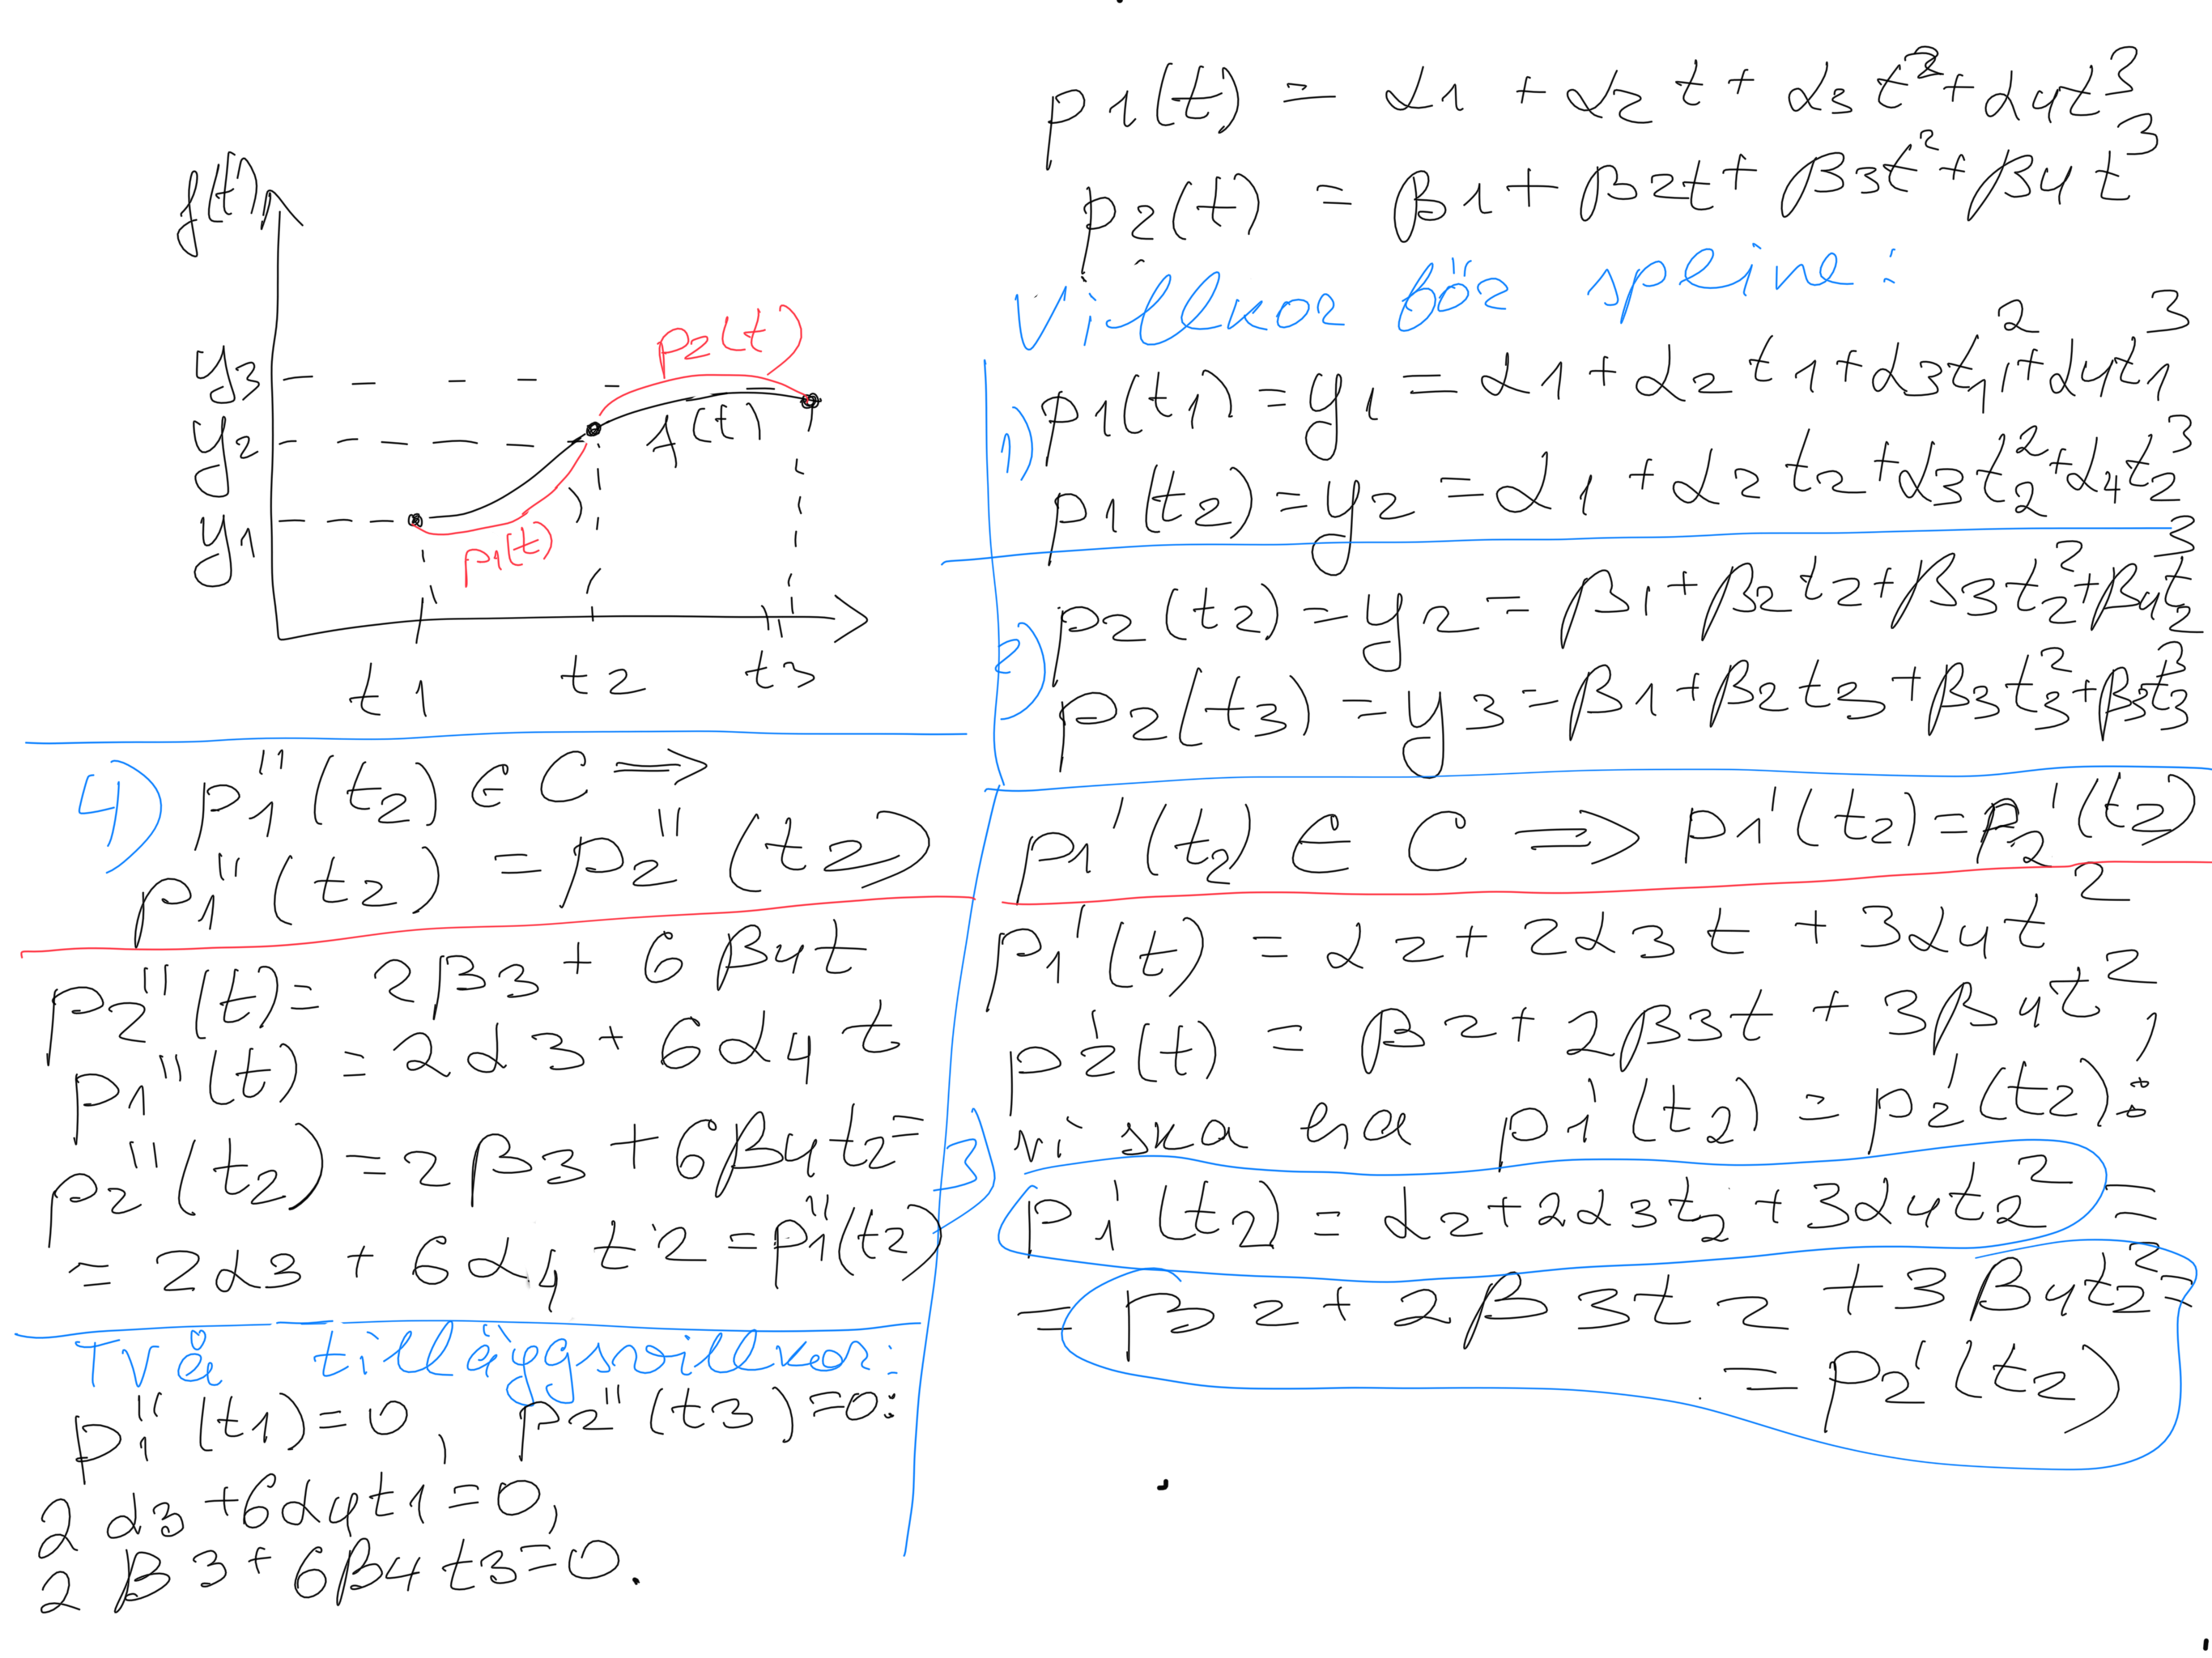 p1(t) = α1 + α2 t + α3 t² + α4t³
p2(t) = β1 + β2t + β3t² + β4t³
Villkor för spline:
1) p1(t1) = y1 = α1 + α2 t1 + α3t1² + α4t1³
p1(t2) = y2 = α1 + α2 t2 + α3t2² + α4t2³
2) p2(t2) = y2 = β1 + β2t2 + β3t2² + β4t2³
p2(t3) = y3 = β1 + β2t3 + β3t3² + β3t3³
p1'(t2) ∈ C ⟹ p1'(t2) = p2'(t2)
p1'(t) = α2 + 2α3 t + 3α4t²
p2'(t) = β2 + 2β3t + 3β4t²,
3) vi ska ha p1'(t2) = p2'(t2):
p1'(t2) = α2 + 2α3t2 + 3α4t2² =
= β2 + 2β3t2 + 3β4t2² =
= p2'(t2)
f(t)
y3
y2
y1
p2(t)
f(t)
p1(t)
t1 t2 t3
4) p1''(t2) ∈ C ⟹
p1''(t2) = p2''(t2)
p2''(t) = 2β3 + 6β4t
p1''(t) = 2α3 + 6α4t
p2''(t2) = 2β3 + 6β4t2 =
= 2α3 + 6α4t2 = p1''(t2)
Två tilläggsvillkor:
p1''(t1) = 0, p2''(t3) = 0:
2α3 + 6α4t1 = 0,
2β3 + 6β4t3 = 0.